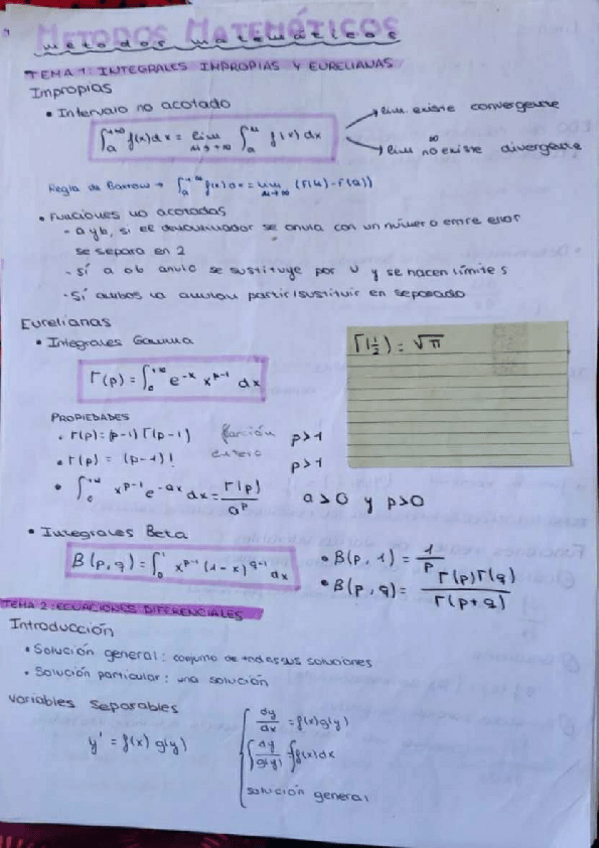 METODOS MATEMÁTICOS
TEMA 1: INTEGRALES IMPROPIAS Y EURELIANAS
Impropias
• Intervalo no acotado
∫ₐ^{+∞} f(x)dx = lim_{u→+∞} ∫ₐ^u f(x)dx
→ lim existe convergente
→ lim no existe divergente
∞
Regla de Barrow →
• Funciones no acotadas
- a y b, si el denominador se anula con un número entre esos
se separa en 2
- Sí a o b anula se sustituye por u y se hacen límites
- Sí ambos lo anulan partir/sustituir en separado
Eurelianas
• Integrales Gamma
Γ(p) = ∫₀^{+∞} e^{-x} x^{p-1} dx
Γ(1/2) = √π
PROPIEDADES
• Γ(p) = (p-1) Γ(p-1) p>1
• Γ(p) = (p-1)! entero p>1
• ∫₀^{+∞} x^{p-1} e^{-ax} dx = Γ(p)/a^p a>0 y p>0
• Integrales Beta
B(p,q) = ∫₀^1 x^{p-1} (1-x)^{q-1} dx
• B(p,1) = 1/p
• B(p,q) = Γ(p)Γ(q)/Γ(p+q)
TEMA 2: ECUACIONES DIFERENCIALES
Introducción
• Solución general: conjunto de todas sus soluciones
• Solución particular: una solución
Variables separables
y' = f(x) g(y)
dy/dx = f(x)g(y)
∫ dy/g(y) ∫ f(x)dx
solución general